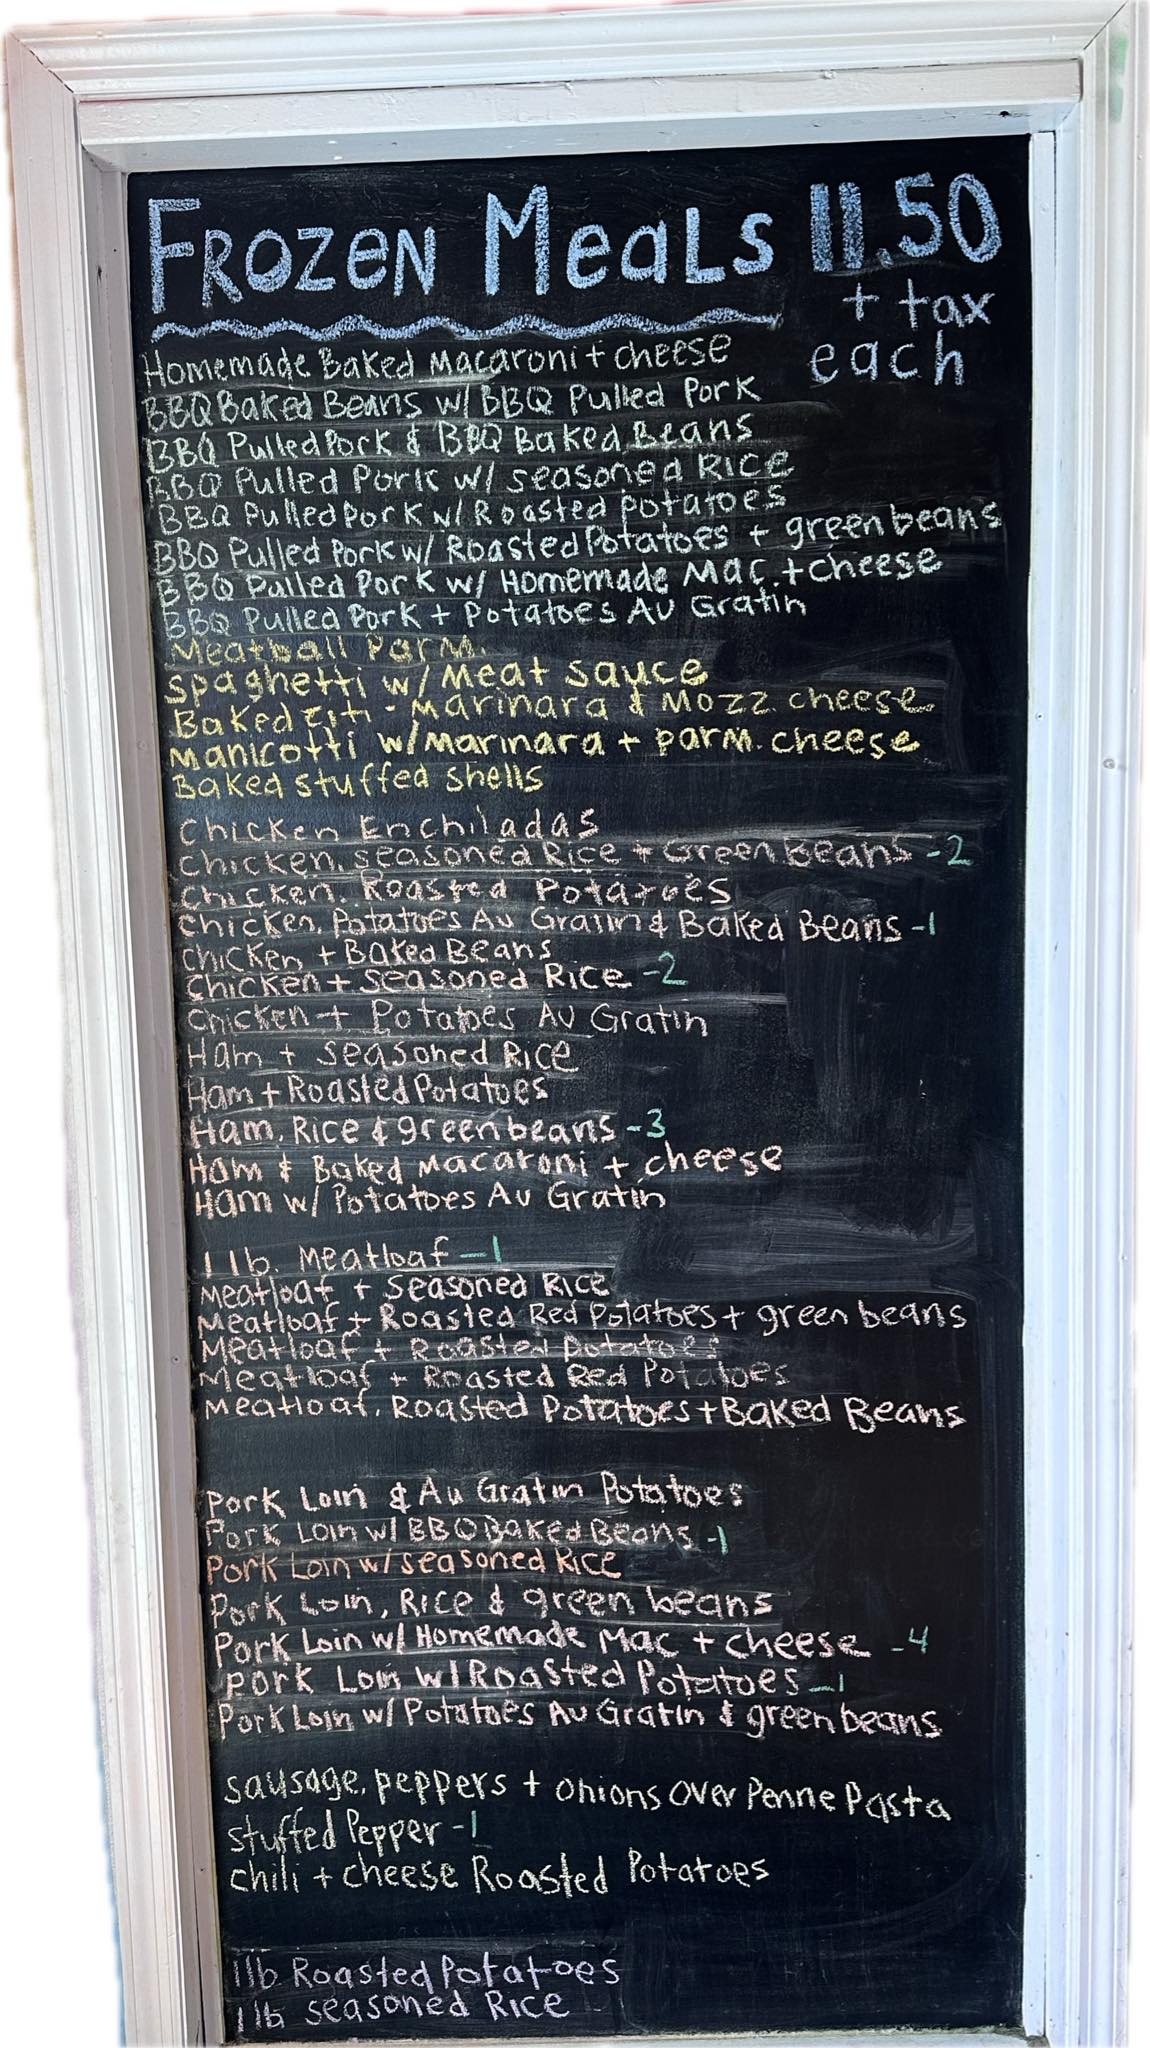 FROZEN MeaLs 11.50
+ tax
each
Homemade Baked Macaroni + cheese
BBQ Baked Beans w/ BBQ Pulled Pork
BBQ Pulled Pork & BBQ Baked Beans
BBQ Pulled Pork w/ seasoned Rice
BBQ Pulled Pork w/ Roasted potatoes
BBQ Pulled Pork w/ Roasted Potatoes + green beans
BBQ Pulled Pork w/ Homemade Mac. + cheese
BBQ Pulled Pork + Potatoes Au Gratin
Meatball Parm.
Spaghetti w/ Meat sauce
Baked Ziti - Marinara & Mozz. cheese
Manicotti w/ Marinara + parm. cheese
Baked stuffed shells
Chicken Enchiladas
Chicken, seasoned Rice + Green Beans -2
Chicken, Roasted Potatoes
Chicken, Potatoes Au Gratin & Baked Beans -1
Chicken + Baked Beans
Chicken + seasoned Rice -2
Chicken + Potatoes Au Gratin
Ham + seasoned Rice
Ham + Roasted Potatoes
Ham, Rice & green beans -3
Ham & Baked Macaroni + cheese
Ham w/ Potatoes Au Gratin
1 lb. Meatloaf -1
Meatloaf + seasoned Rice
Meatloaf + Roasted Red Potatoes + green beans
Meatloaf + Roasted Potatoes
Meatloaf + Roasted Red Potatoes
Meatloaf, Roasted Potatoes + Baked Beans
Pork Loin & Au Gratin Potatoes
Pork Loin w/ BBQ Baked Beans -1
Pork Loin w/ seasoned Rice
Pork Loin, Rice & green beans
Pork Loin w/ Homemade Mac + cheese -4
Pork Loin w/ Roasted Potatoes -1
Pork Loin w/ Potatoes Au Gratin & green beans
sausage, peppers + onions over Penne Pasta
stuffed Pepper -1
chili + cheese Roasted Potatoes
1 lb Roasted Potatoes
1 lb seasoned Rice